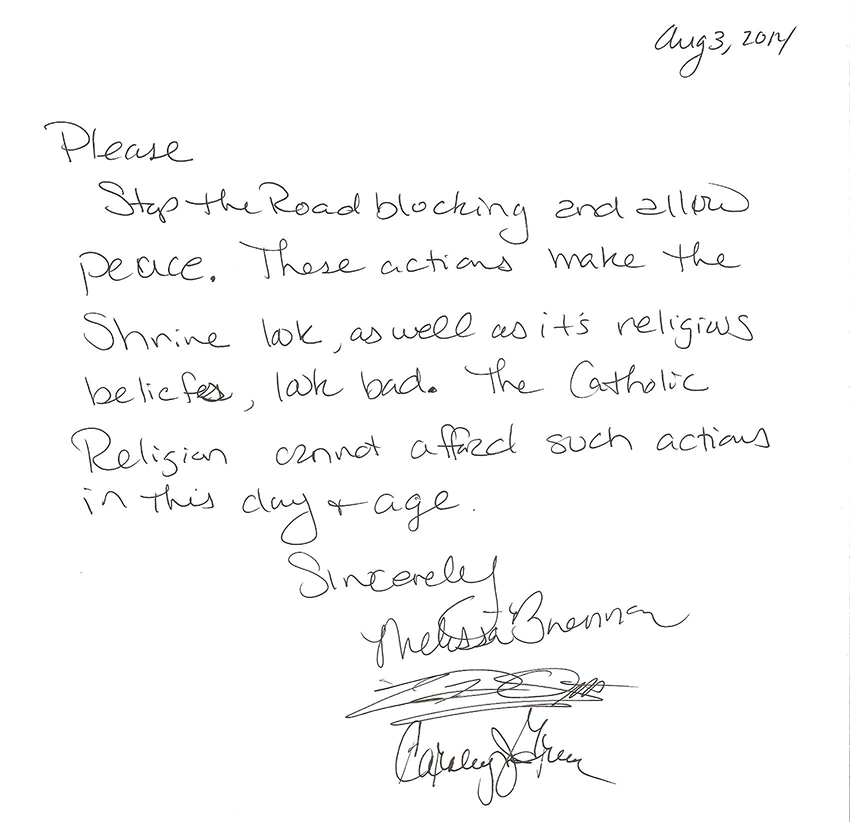 Aug 3, 2014
Please
Stop the Road blocking and allow
peace. These actions make the
Shrine look, as well as it's religious
beliefs, look bad. The Catholic
Religion cannot afford such actions
in this day + age.
Sincerely
Melissa Brennan